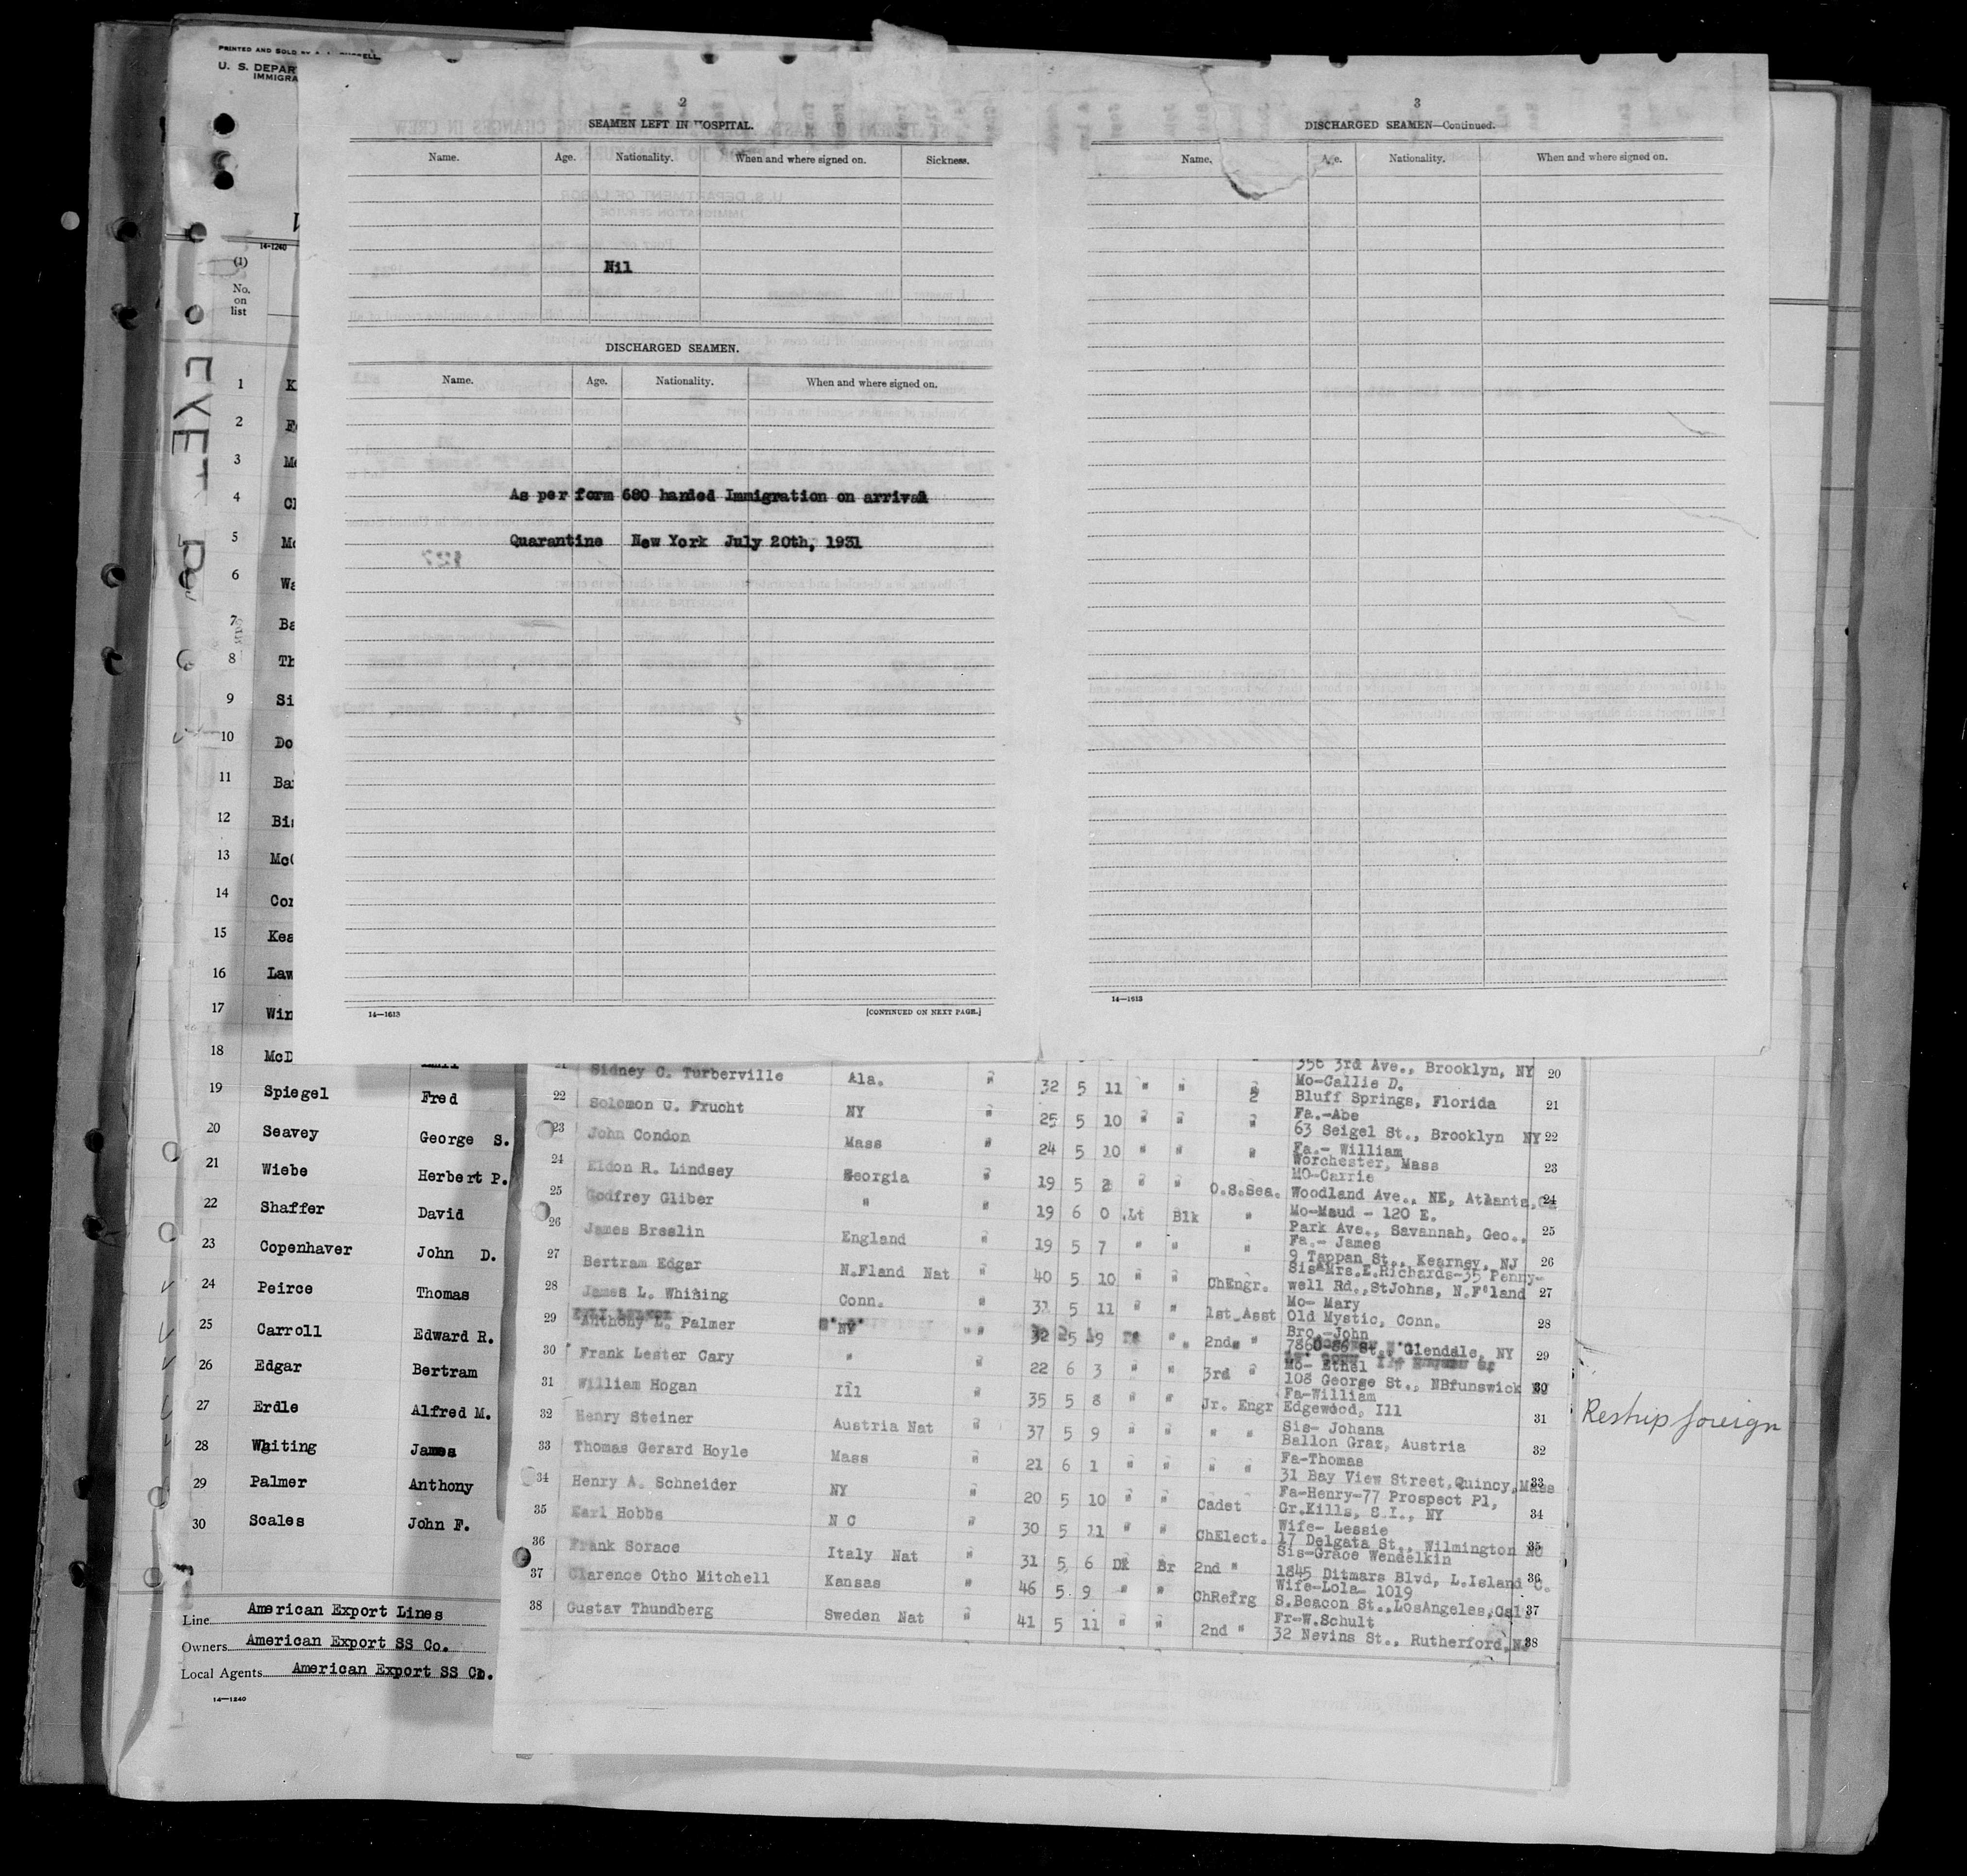 PRINTED AND SOLD
U. S. DEPAR
IMMIGRA
14-1240
(1)
No.
on
list
2
SEAMEN LEFT IN HOSPITAL.
Name. Age. Nationality. When and where signed on. Sickness.
Nil
DISCHARGED SEAMEN.
Name. Age. Nationality. When and where signed on.
As per form 680 handed Immigration on arrival
Quarantine New York July 20th, 1931
14—1613 [CONTINUED ON NEXT PAGE.]
3
DISCHARGED SEAMEN—Continued.
Name. Age. Nationality. When and where signed on.
14—1613
1 K
2 Fe
3 Mc
4 Cl
5 Mc
6 Wa
7 Ba
8 Th
9 Si
10 Do
11 Ba
12 Bi
13 McC
14 Cor
15 Kea
16 Law
17 Win
18 McD
19 Spiegel Fred
20 Seavey George S.
21 Wiebe Herbert P.
22 Shaffer David
23 Copenhaver John D.
24 Peirce Thomas
25 Carroll Edward R.
26 Edgar Bertram
27 Erdle Alfred M.
28 Whiting James
29 Palmer Anthony
30 Scales John F.
Line American Export Lines
Owners American Export SS Co.
Local Agents American Export SS Co.
14—1240
356 3rd Ave., Brooklyn, NY 20
21 Sidney C. Turberville Ala. " 32 5 11 " " " Mo-Callie D.
Bluff Springs, Florida 21
22 Solomon C. Frucht NY " 25 5 10 " " " Fa.-Abe
63 Seigel St., Brooklyn NY 22
23 John Condon Mass " 24 5 10 " " " Fa.- William
Worchester, Mass 23
24 Eldon R. Lindsey Georgia " 19 5 2 " " O.S.Sea. MO-Carrie
Woodland Ave., NE, Atlanta, Ga 24
25 Godfrey Gliber " " 19 6 0 Lt Blk " Mo-Maud - 120 E.
Park Ave., Savannah, Geo., 25
26 James Breslin England " 19 5 7 " " " Fa.- James
9 Tappan St., Kearney, NJ 26
27 Bertram Edgar N.Fland Nat " 40 5 10 " " ChEngr. Sis-Mrs.E.Richards-35 Penny-
well Rd.,StJohns, N.F'land 27
28 James L. Whiting Conn. " 31 5 11 " " 1st Asst Mo- Mary
Old Mystic, Conn. 28
29 Anthony L. Palmer NY " 32 5 9 " " 2nd " Bro.-John
Glendale, NY 29
30 Frank Lester Cary " " 22 6 3 " " 3rd " Mo- Ethel
108 George St., NBrunswick NJ 30
31 William Hogan Ill " 35 5 8 " " Jr. Engr Fa-William
Edgewood, Ill 31
32 Henry Steiner Austria Nat " 37 5 9 " " " " Sis- Johana
Ballon Graz, Austria 32
33 Thomas Gerard Hoyle Mass " 21 6 1 " " " " Fa-Thomas
31 Bay View Street,Quincy,Mass 33
34 Henry A. Schneider NY " 20 5 10 " " Cadet Fa-Henry-77 Prospect Pl,
Gr.Kills, S.I., NY 34
35 Earl Hobbs N C " 30 5 11 " " ChElect. Wife- Lessie
17 Delgata St., Wilmington NC 35
36 Frank Sorace Italy Nat " 31 5 6 Dk Br 2nd " Sis-Grace Wendelkin
1845 Ditmars Blvd, L.Island C. 36
37 Clarence Otho Mitchell Kansas " 46 5 9 " " ChRefrg Wife-Lola- 1019
S.Beacon St.,LosAngeles,Cal 37
38 Gustav Thundberg Sweden Nat " 41 5 11 " " 2nd " Fr-W.Schult
32 Nevins St., Rutherford,NJ 38
Reship foreign